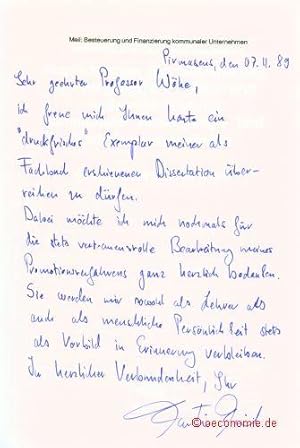 Meil: Besteuerung und Finanzierung kommunaler Unternehmen
Pirmasens, den 07.11.89
Sehr geehrter Professor Wöhe,
ich freue mich Ihnen heute ein
"druckfrisches" Exemplar meiner als
Fachbuch erschienenen Dissertation über-
reichen zu dürfen.
Dabei möchte ich mich nochmals für
die stets vertrauensvolle Bearbeitung meines
Promotionsverfahrens ganz herzlich bedanken.
Sie werden mir sowohl als Lehrer als
auch als menschliche Persönlichkeit stets
als Vorbild in Erinnerung verbleiben.
In herzlicher Verbundenheit, Ihr
© oeconomie.de